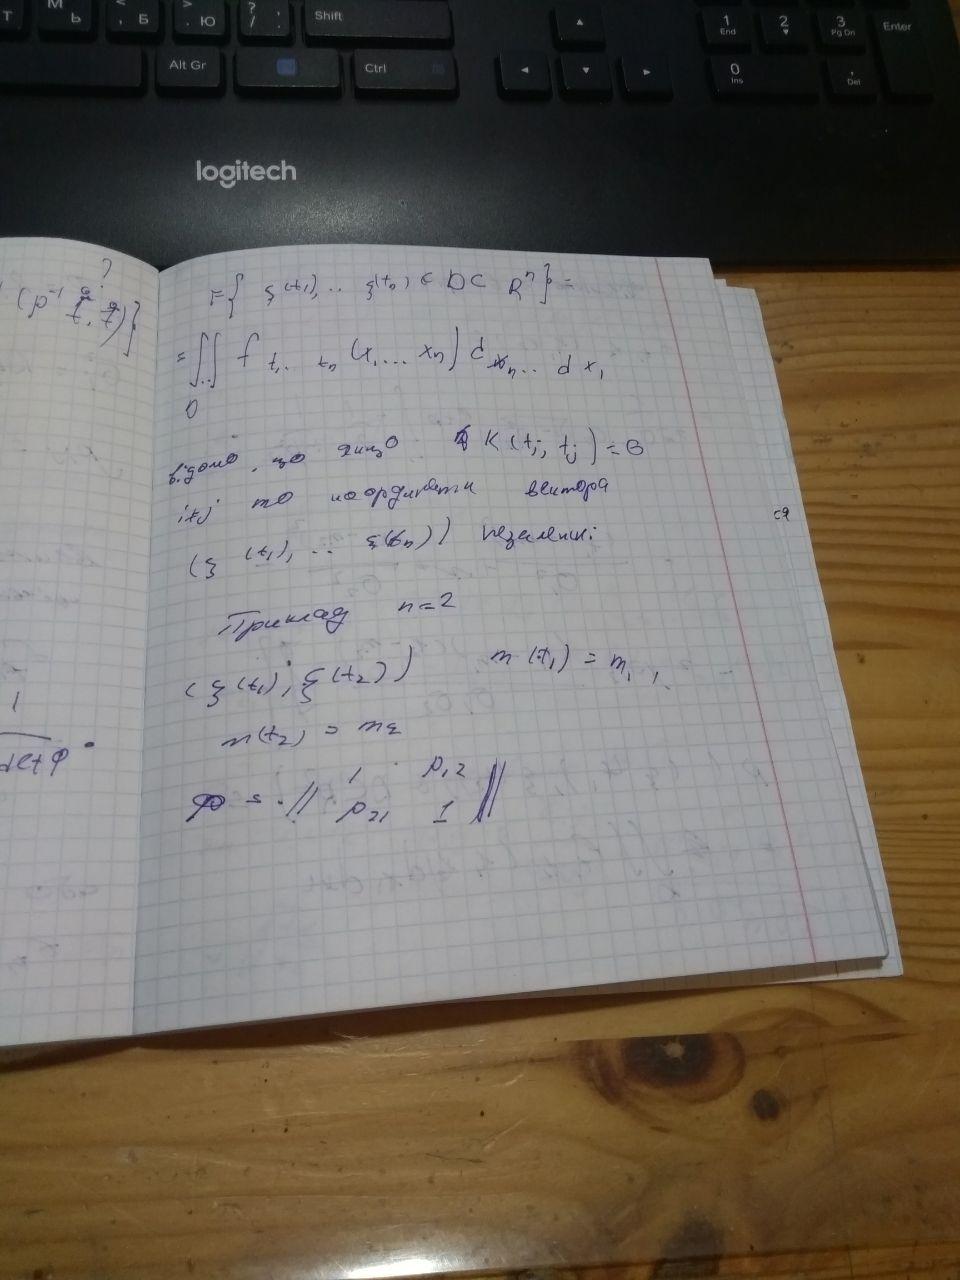 Т М Ь < , Б > . Ю ? / . Shift
Alt Gr Ctrl
1 End 2 3 Pg Dn Enter
0 Ins , Del
logitech
P{ ξ(t₁), .. ξ(tₙ) ∈ D ⊂ Rⁿ} =
= ∫∫.. f t₁.. tₙ (x₁ ... xₙ) d xₙ ... d x₁
D
Відомо, що якщо K(ti, tj) = 0
i≠j то координати вектора
(ξ(t₁), ... ξ(tₙ)) незалежні
Приклад n=2
(ξ(t₁), ξ(t₂)) m(t₁) = m₁,
m(t₂) = m₂
ρ = || 1 ρ₁₂
ρ₂₁ 1 ||